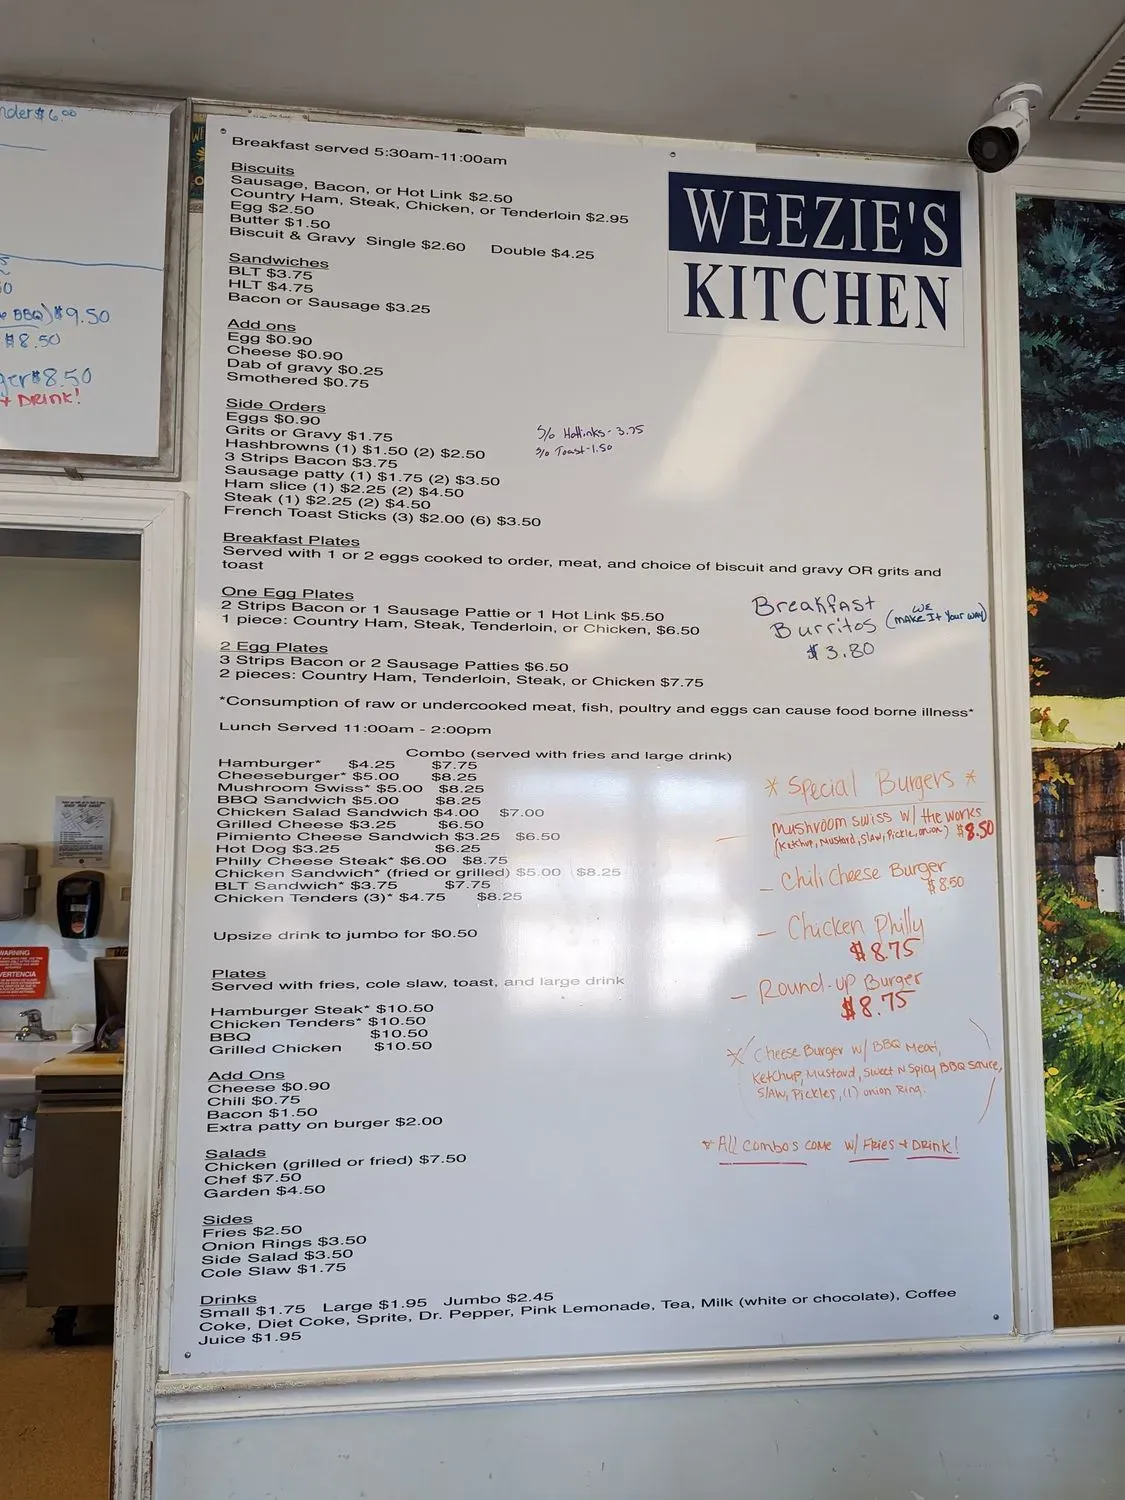 nder $6.00
BBQ) $9.50
$8.50
ger $8.50
+ DRINK!
WEEZIE'S
KITCHEN
Breakfast served 5:30am-11:00am
Biscuits
Sausage, Bacon, or Hot Link $2.50
Country Ham, Steak, Chicken, or Tenderloin $2.95
Egg $2.50
Butter $1.50
Biscuit & Gravy Single $2.60 Double $4.25
Sandwiches
BLT $3.75
HLT $4.75
Bacon or Sausage $3.25
Add ons
Egg $0.90
Cheese $0.90
Dab of gravy $0.25
Smothered $0.75
Side Orders
Eggs $0.90
Grits or Gravy $1.75
Hashbrowns (1) $1.50 (2) $2.50
3 Strips Bacon $3.75
Sausage patty (1) $1.75 (2) $3.50
Ham slice (1) $2.25 (2) $4.50
Steak (1) $2.25 (2) $4.50
French Toast Sticks (3) $2.00 (6) $3.50
S/o Hotlinks - 3.75
S/o Toast - 1.50
Breakfast Plates
Served with 1 or 2 eggs cooked to order, meat, and choice of biscuit and gravy OR grits and
toast
One Egg Plates
2 Strips Bacon or 1 Sausage Pattie or 1 Hot Link $5.50
1 piece: Country Ham, Steak, Tenderloin, or Chicken, $6.50
2 Egg Plates
3 Strips Bacon or 2 Sausage Patties $6.50
2 pieces: Country Ham, Tenderloin, Steak, or Chicken $7.75
Breakfast
Burritos (WE MAKE It Your WAY)
$3.80
*Consumption of raw or undercooked meat, fish, poultry and eggs can cause food borne illness*
Lunch Served 11:00am - 2:00pm
Combo (served with fries and large drink)
Hamburger* $4.25 $7.75
Cheeseburger* $5.00 $8.25
Mushroom Swiss* $5.00 $8.25
BBQ Sandwich $5.00 $8.25
Chicken Salad Sandwich $4.00 $7.00
Grilled Cheese $3.25 $6.50
Pimiento Cheese Sandwich $3.25 $6.50
Hot Dog $3.25 $6.25
Philly Cheese Steak* $6.00 $8.75
Chicken Sandwich* (fried or grilled) $5.00 $8.25
BLT Sandwich* $3.75 $7.75
Chicken Tenders (3)* $4.75 $8.25
Upsize drink to jumbo for $0.50
Plates
Served with fries, cole slaw, toast, and large drink
Hamburger Steak* $10.50
Chicken Tenders* $10.50
BBQ $10.50
Grilled Chicken $10.50
Add Ons
Cheese $0.90
Chili $0.75
Bacon $1.50
Extra patty on burger $2.00
Salads
Chicken (grilled or fried) $7.50
Chef $7.50
Garden $4.50
Sides
Fries $2.50
Onion Rings $3.50
Side Salad $3.50
Cole Slaw $1.75
Drinks
Small $1.75 Large $1.95 Jumbo $2.45
Coke, Diet Coke, Sprite, Dr. Pepper, Pink Lemonade, Tea, Milk (white or chocolate), Coffee
Juice $1.95
* Special Burgers *
— Mushroom swiss w/ the works
(Ketchup, Mustard, Slaw, Pickle, onion) $8.50
— Chili Cheese Burger
$8.50
— Chicken Philly
$8.75
— Round-up Burger
$8.75
* Cheese Burger w/ BBQ Meat,
Ketchup, Mustard, Sweet N Spicy BBQ Sauce,
Slaw, Pickles, (1) onion Ring.
* All combo's come w/ Fries + DRINK!
WARNING